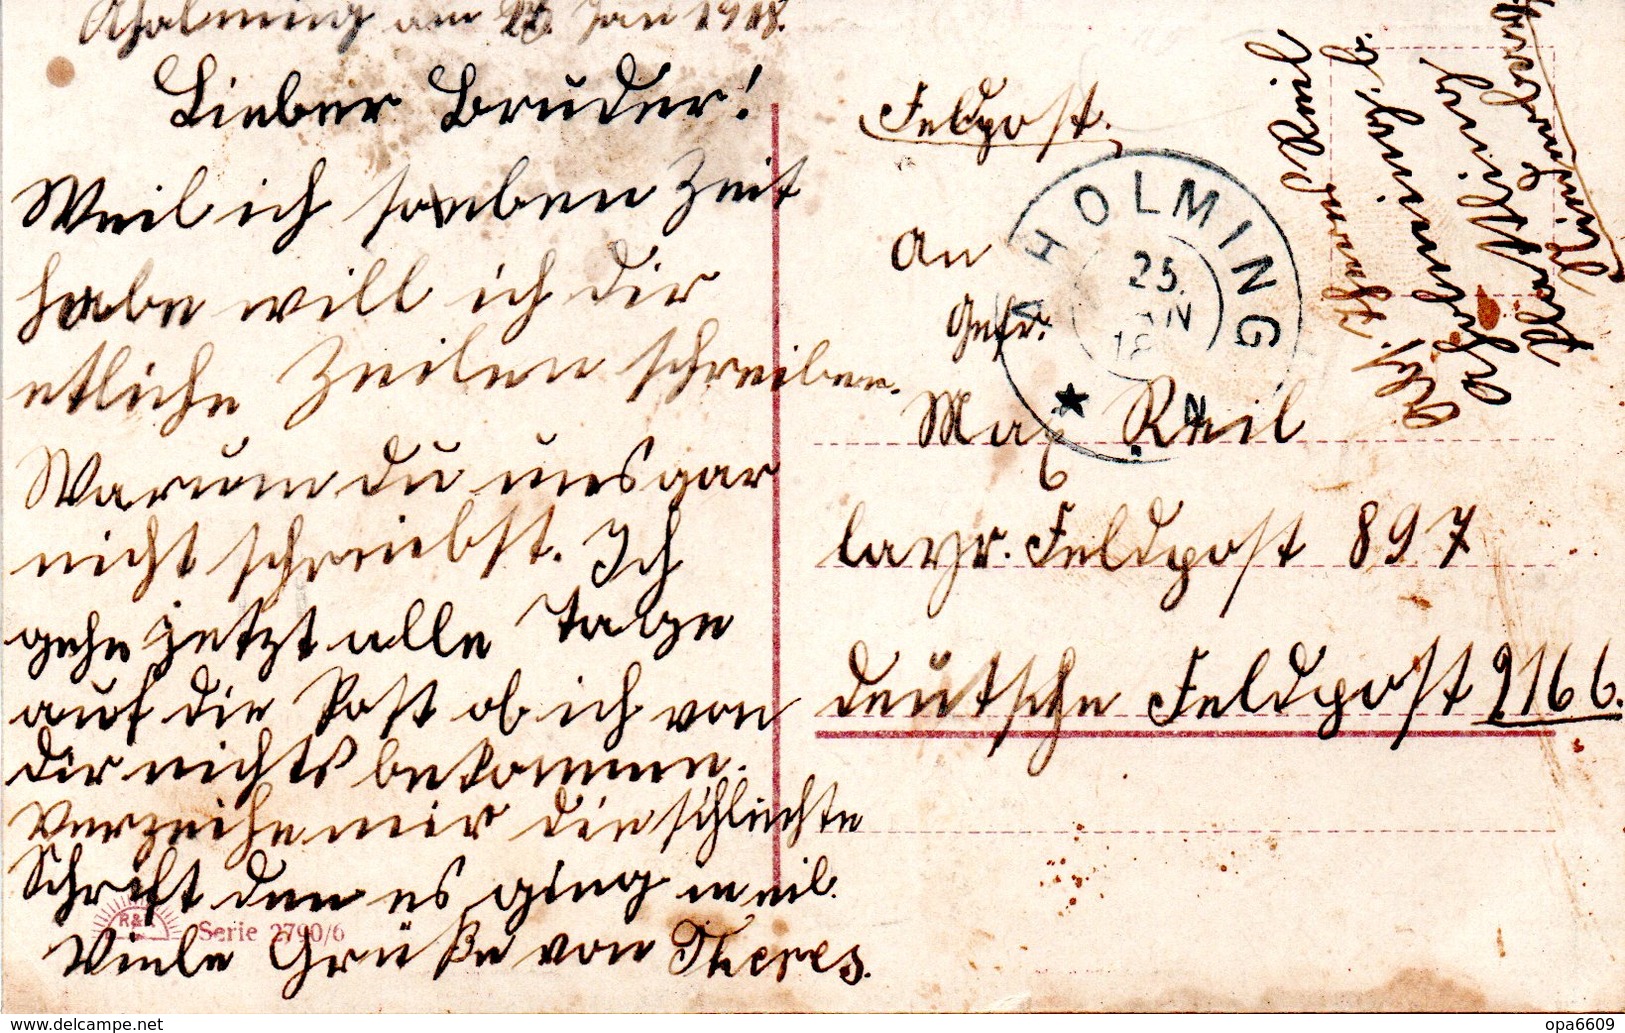 Aholming am Jan 1918.
Lieber Bruder!
Weil ich soeben Zeit
habe will ich dir
etliche Zeilen schreiben.
Warum du uns gar
nicht schreibst. Ich
gehe jetzt alle Tage
auf die Post ob ich von
dir nichts bekomme.
Verzeihe mir die schlechte
Schrift den es ging
Viele Grüße von Theres.
R&K
Serie 2790/6
Feldpost.
An
Gefr.
Max Reil
bayr. Feldpost 897
deutsche Feldpost 9166.
AHOLMING
25.
JAN
18
Abs. Theres Reil
Aholming
Post
opa6609
www.delcampe.net